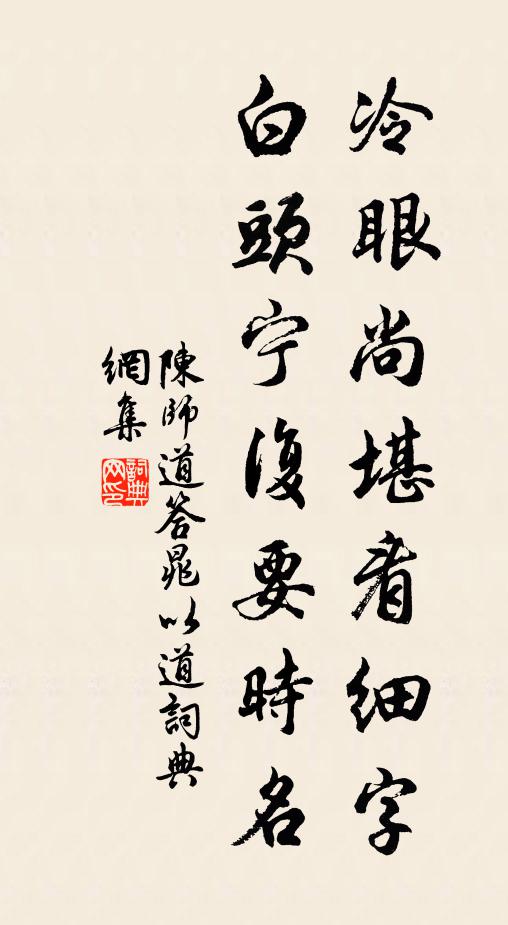 冷眼尚堪看细字
白頭宁復要時名
陳師道答晁以道詞典
網集
詞典网印